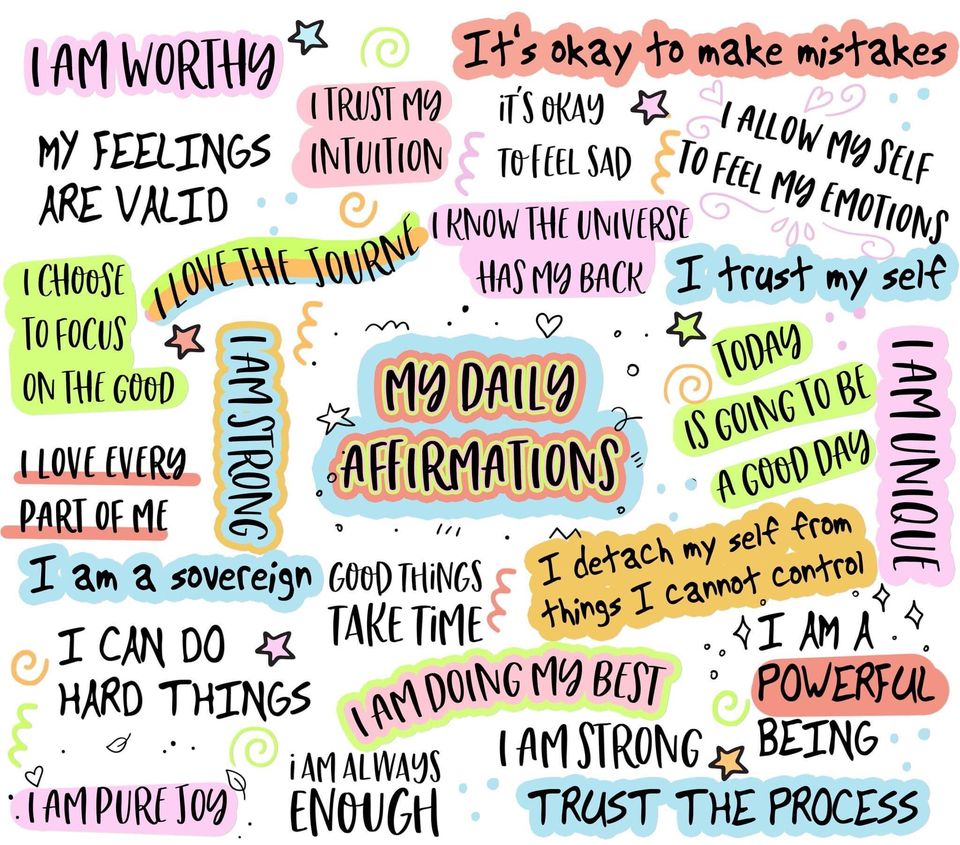 I AM WORTHY
It's okay to make mistakes
I TRUST MY
INTUITION
iT'S OKAY
TO FEEL SAD
I ALLOW MY SELF
TO FEEL MY EMOTIONS
MY FEELINGS
ARE VALID
I KNOW THE UNIVERSE
HAS MY BACK
I LOVE THE JOURNE
I trust my self
I CHOOSE
TO FOCUS
ON THE GOOD
I AM STRONG
MY DAILY
AFFIRMATIONS
TODAY
IS GOING TO BE
A GOOD DAY
I AM UNIQUE
I LOVE EVERY
PART OF ME
I am a sovereign
GOOD THiNGS
TAKE TiME
I detach my self from
things I cannot control
I CAN DO
HARD THINGS
I AM DOING MY BEST
I AM A
POWERFUL
BEING
I AM STRONG
i AM ALWAYS
ENOUGH
I AM PURE JOY
TRUST THE PROCESS